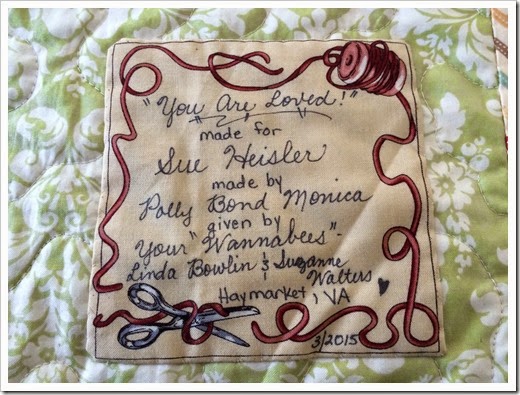 "You Are Loved!"
made for
Sue Heisler
made by
Polly Bond Monica
given by
Your "Wannabees" -
Linda Bowlin & Suzanne
Walters
Haymarket, VA
3/2015